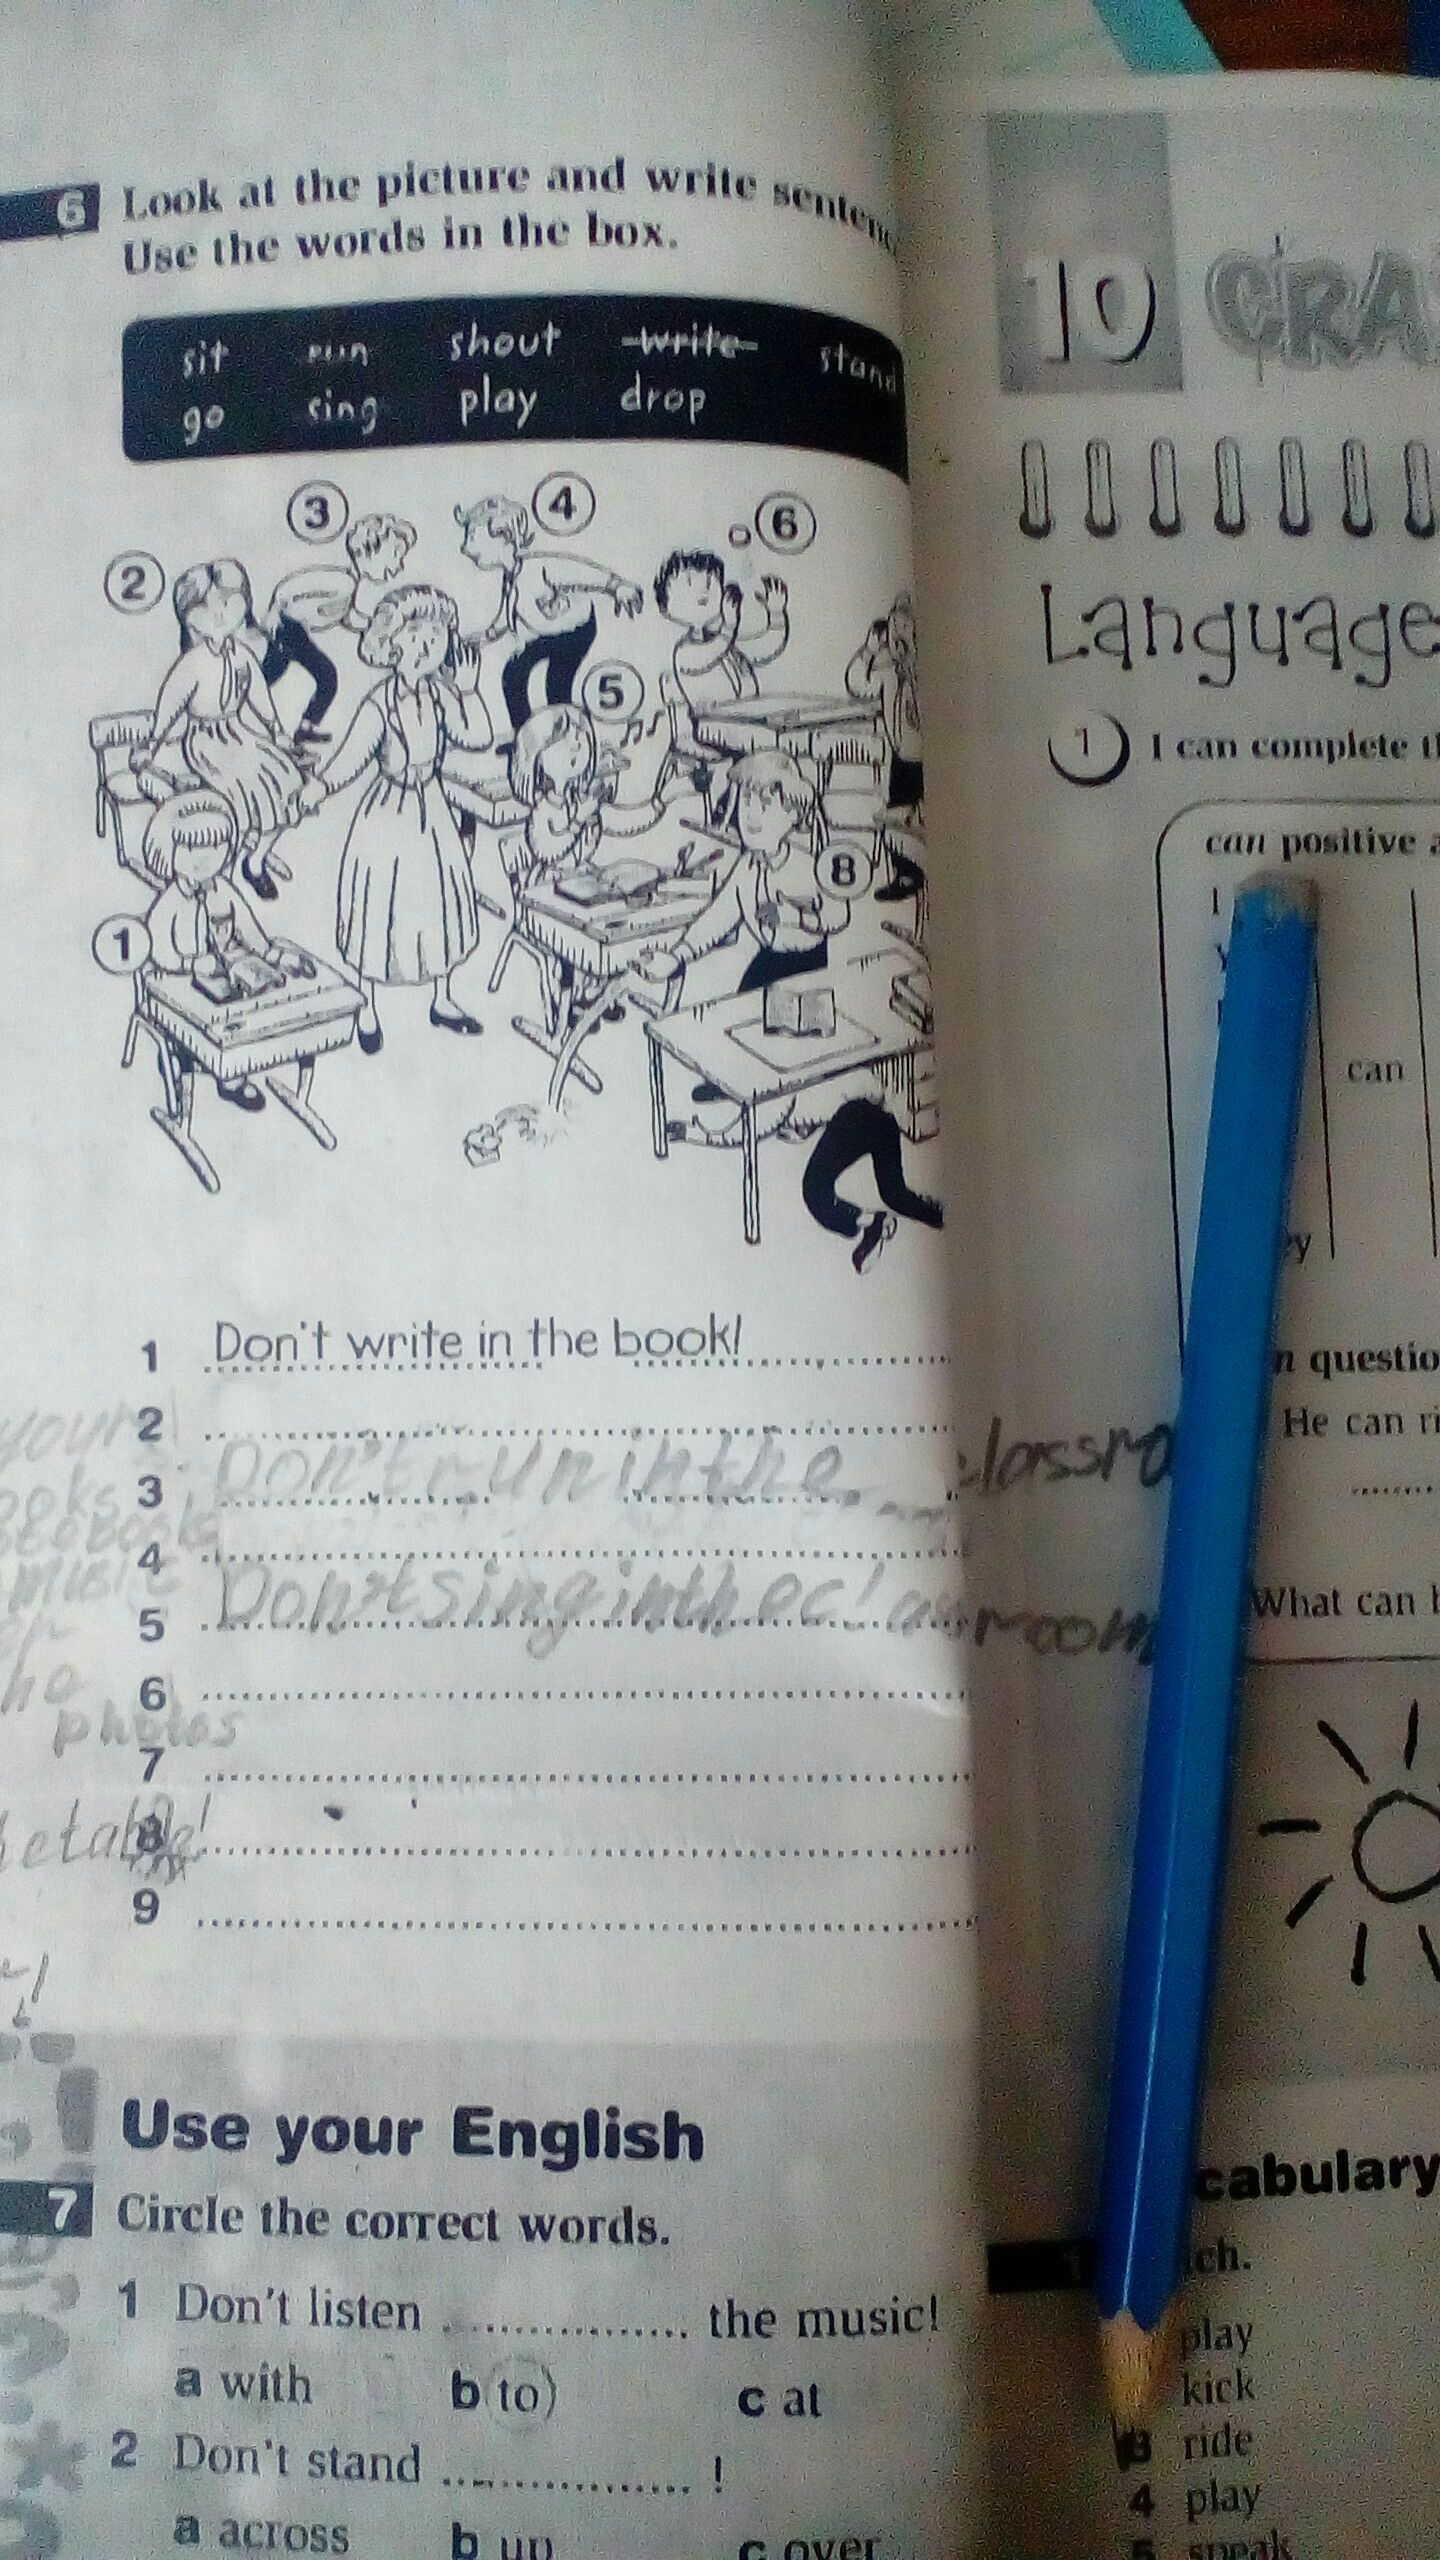 6 Look at the picture and write
Use the words in the box.
sit run shout write stand
go sing play drop
3
4
6
2
5
8
1
1 Don't write in the book!
2
Don't run in the classro
3
4
Don't sing in the classroom
5
6
photos
7
8
9
Use your English
7 Circle the correct words.
1 Don't listen ............... the music!
a with b to c at
2 Don't stand ............... !
a across b up c over
10
Language
1 I can complete
can positive
I
can
questio
He can
What can
cabulary
play
kick
3 ride
4 play
5 speak